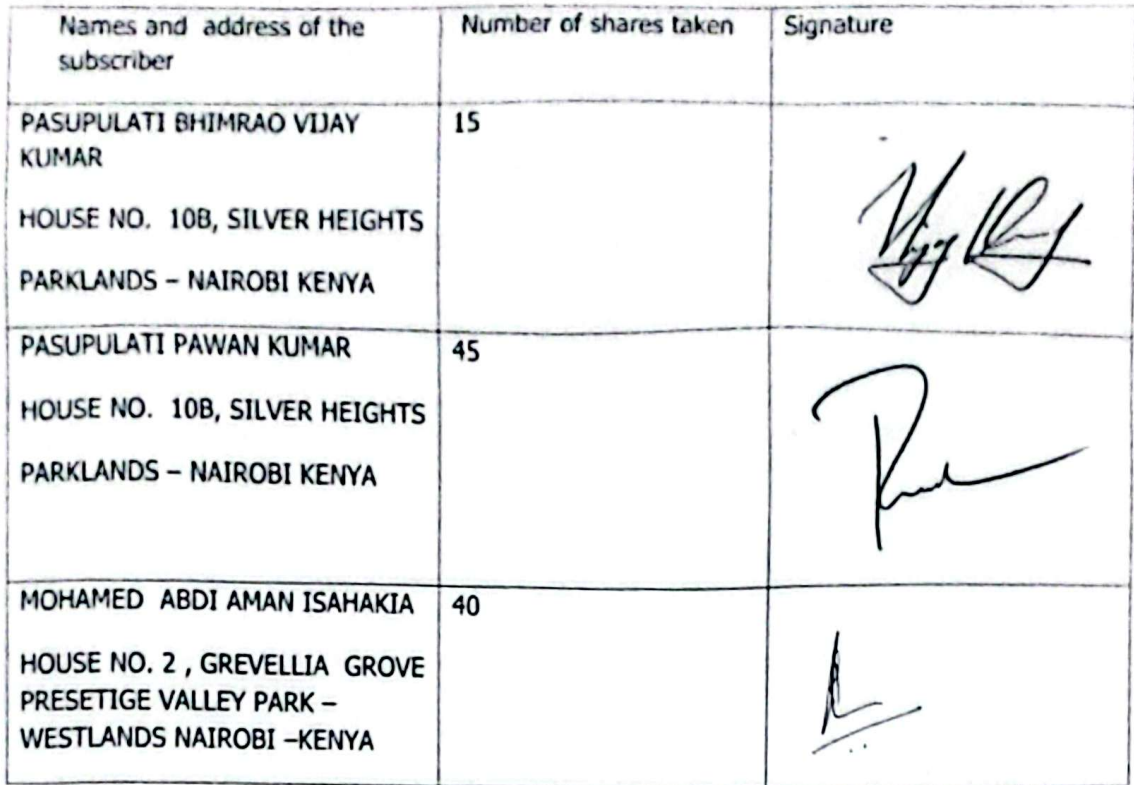 Names and address of the subscriber
Number of shares taken
Signature
PASUPULATI BHIMRAO VIJAY
KUMAR
HOUSE NO. 10B, SILVER HEIGHTS
PARKLANDS – NAIROBI KENYA
15
Vijay
PASUPULATI PAWAN KUMAR
HOUSE NO. 10B, SILVER HEIGHTS
PARKLANDS – NAIROBI KENYA
45
MOHAMED ABDI AMAN ISAHAKIA
HOUSE NO. 2 , GREVELLIA GROVE
PRESETIGE VALLEY PARK –
WESTLANDS NAIROBI –KENYA
40